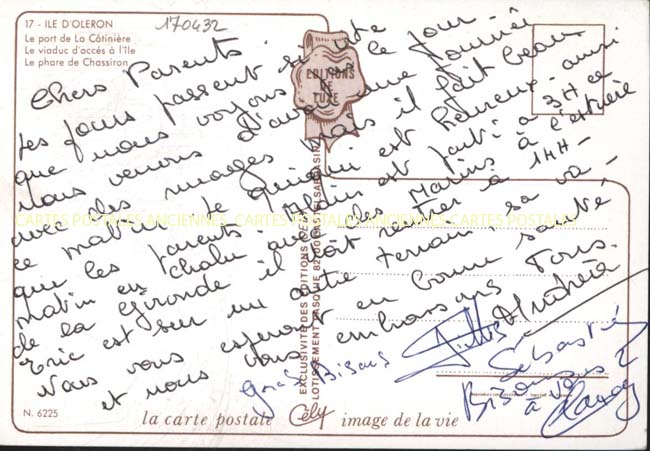 17 - ILE D'OLERON
Le port de La Côtinière
Le viaduc d'accés à l'île
Le phare de Chassiron
170432
EDITIONS
DE
LUXE
Chers Parents
Les jours passent si vite
que nous voyons pas le jour
Nous venons d'avoir une journée
avec des nuages mais il fait beau
ce matin. Le est heureux - ainsi
que les parents. Alain est parti a 3H ce
matin en chalu avec des Marins à l'estuère
de la Gironde il doit rentrer à 14H -
Eric est sur un autre terrain sa va -
Nous vous esperont en bonne santé
et nous vous embrassons Tous.
Gros Bisous
Sebastien
Bisous
à vous 2
CARTES POSTALES ANCIENNES CARTES POSTALES ANCIENNES CARTES POSTALES
EXCLUSIVITE DES EDITIONS
LOTISSEMENT PASQUE 82100 CASTELSARRASIN
N. 6225
la carte postale Cély image de la vie